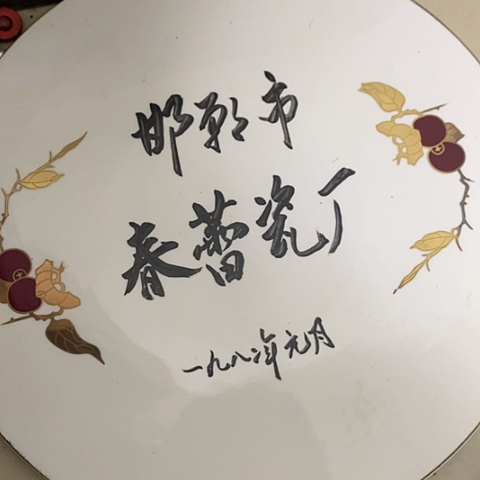 邯郸市
春蕾瓷厂
一九八八年元月